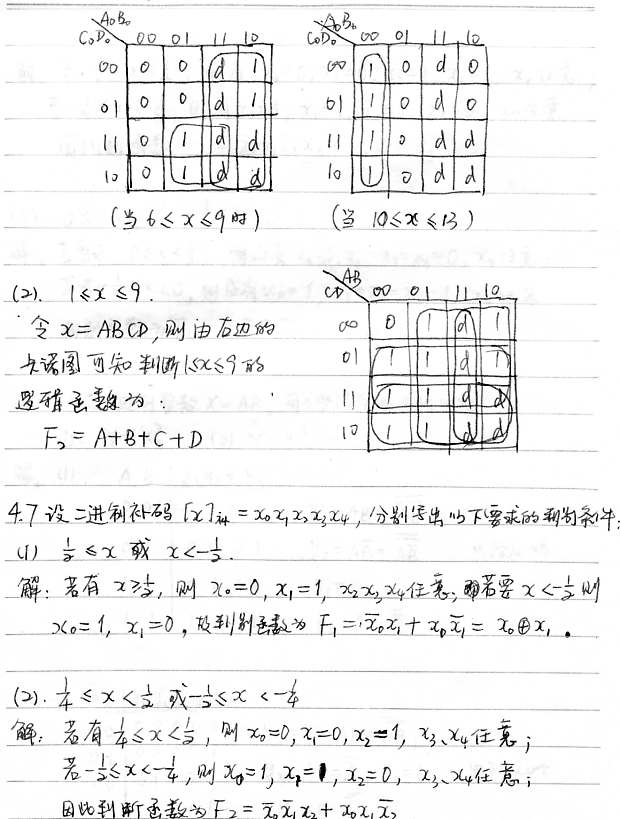 A₀B₀ A₀B₀
C₀D₀ 00 01 11 10 C₀D₀ 00 01 11 10
00 0 0 d 1 00 1 0 d 0
01 0 0 d 1 01 1 0 d 0
11 0 1 d d 11 1 0 d d
10 0 1 d d 10 1 0 d d
(当 6≤x≤9时) (当 10≤x≤13)
(2). 1≤x≤9.
令 x=ABCD, 则由右边的
卡诺图可知判断1≤x≤9的
逻辑函数为:
F₂ = A+B+C+D
AB
CD 00 01 11 10
00 0 1 d 1
01 1 1 d 1
11 1 1 d d
10 1 1 d d
4.7 设二进制补码 [x]补 = x₀x₁x₂x₃x₄, 分别写出以下要求的判别条件:
(1) ½ ≤ x 或 x<-½.
解: 若有 x≥½, 则 x₀=0, x₁=1, x₂x₃x₄任意; 若要 x<-½ 则
x₀=1, x₁=0, 故判别函数为 F₁ = x̄₀x₁ + x₀x̄₁ = x₀⊕x₁.
(2). ¼ ≤ x < ½ 或 -½≤x <-¼
解: 若有 ¼≤x<½, 则 x₀=0, x₁=0, x₂=1, x₃、x₄任意;
若-½≤x<-¼, 则 x₀=1, x₁=1, x₂=0, x₃、x₄任意;
因此判断函数为 F₂ = x̄₀x̄₁x₂ + x₀x₁x̄₂